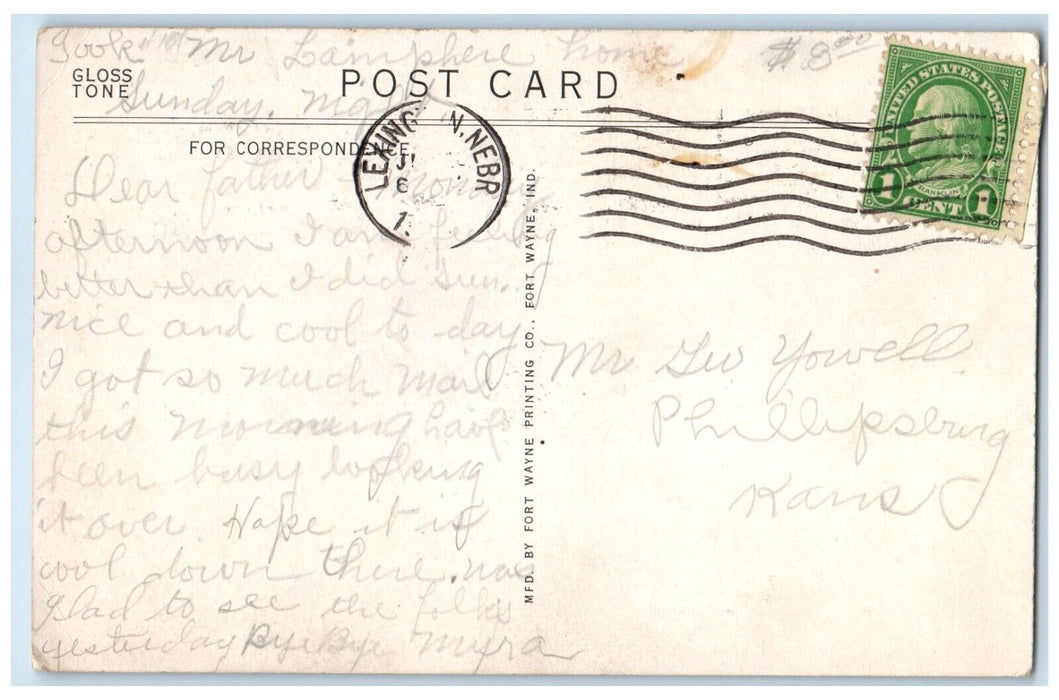 Took Mr Lamphere home $8.00
Sunday. night
GLOSS
TONE
POST CARD
FOR CORRESPONDENCE
LEXING N, NEBR
6
1
UNITED STATES POSTAGE
FRANKLIN
1 CENT 1
Dear father Monday
afternoon I am feeling
better than I did Sun.
nice and cool to day
I got so much mail
this morning have
been busy looking
it over. Hope it is
cool down there. was
glad to see the folks
yesterday Bye Bye Myra
MFD. BY FORT WAYNE PRINTING CO., FORT WAYNE, IND.
Mr Geo Yowell
Phillipsburg
Kans